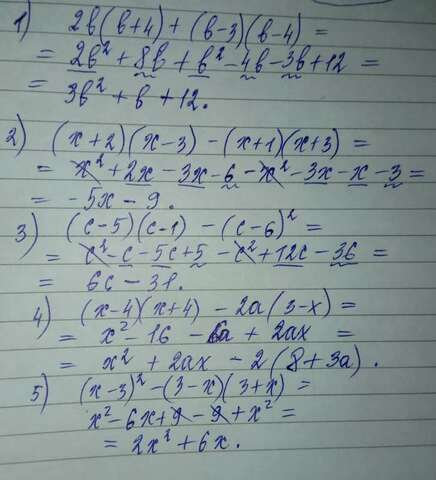 1) 2в(в+4) + (в-3)(в-4) =
= 2в² + 8в + в² - 4в - 3в + 12 =
= 3в² + в + 12.
2) (x+2)(x-3) - (x+1)(x+3) =
= x² + 2x - 3x - 6 - x² - 3x - x - 3 =
= -5x - 9.
3) (c-5)(c-1) - (c-6)² =
= c² - c - 5c + 5 - c² + 12c - 36 =
= 6c - 31.
4) (x-4)(x+4) - 2a(3-x) =
= x² - 16 - 6a + 2ax =
= x² + 2ax - 2(8+3a).
5) (x-3)² - (3-x)(3+x) =
x² - 6x + 9 - 9 + x² =
= 2x² + 6x.